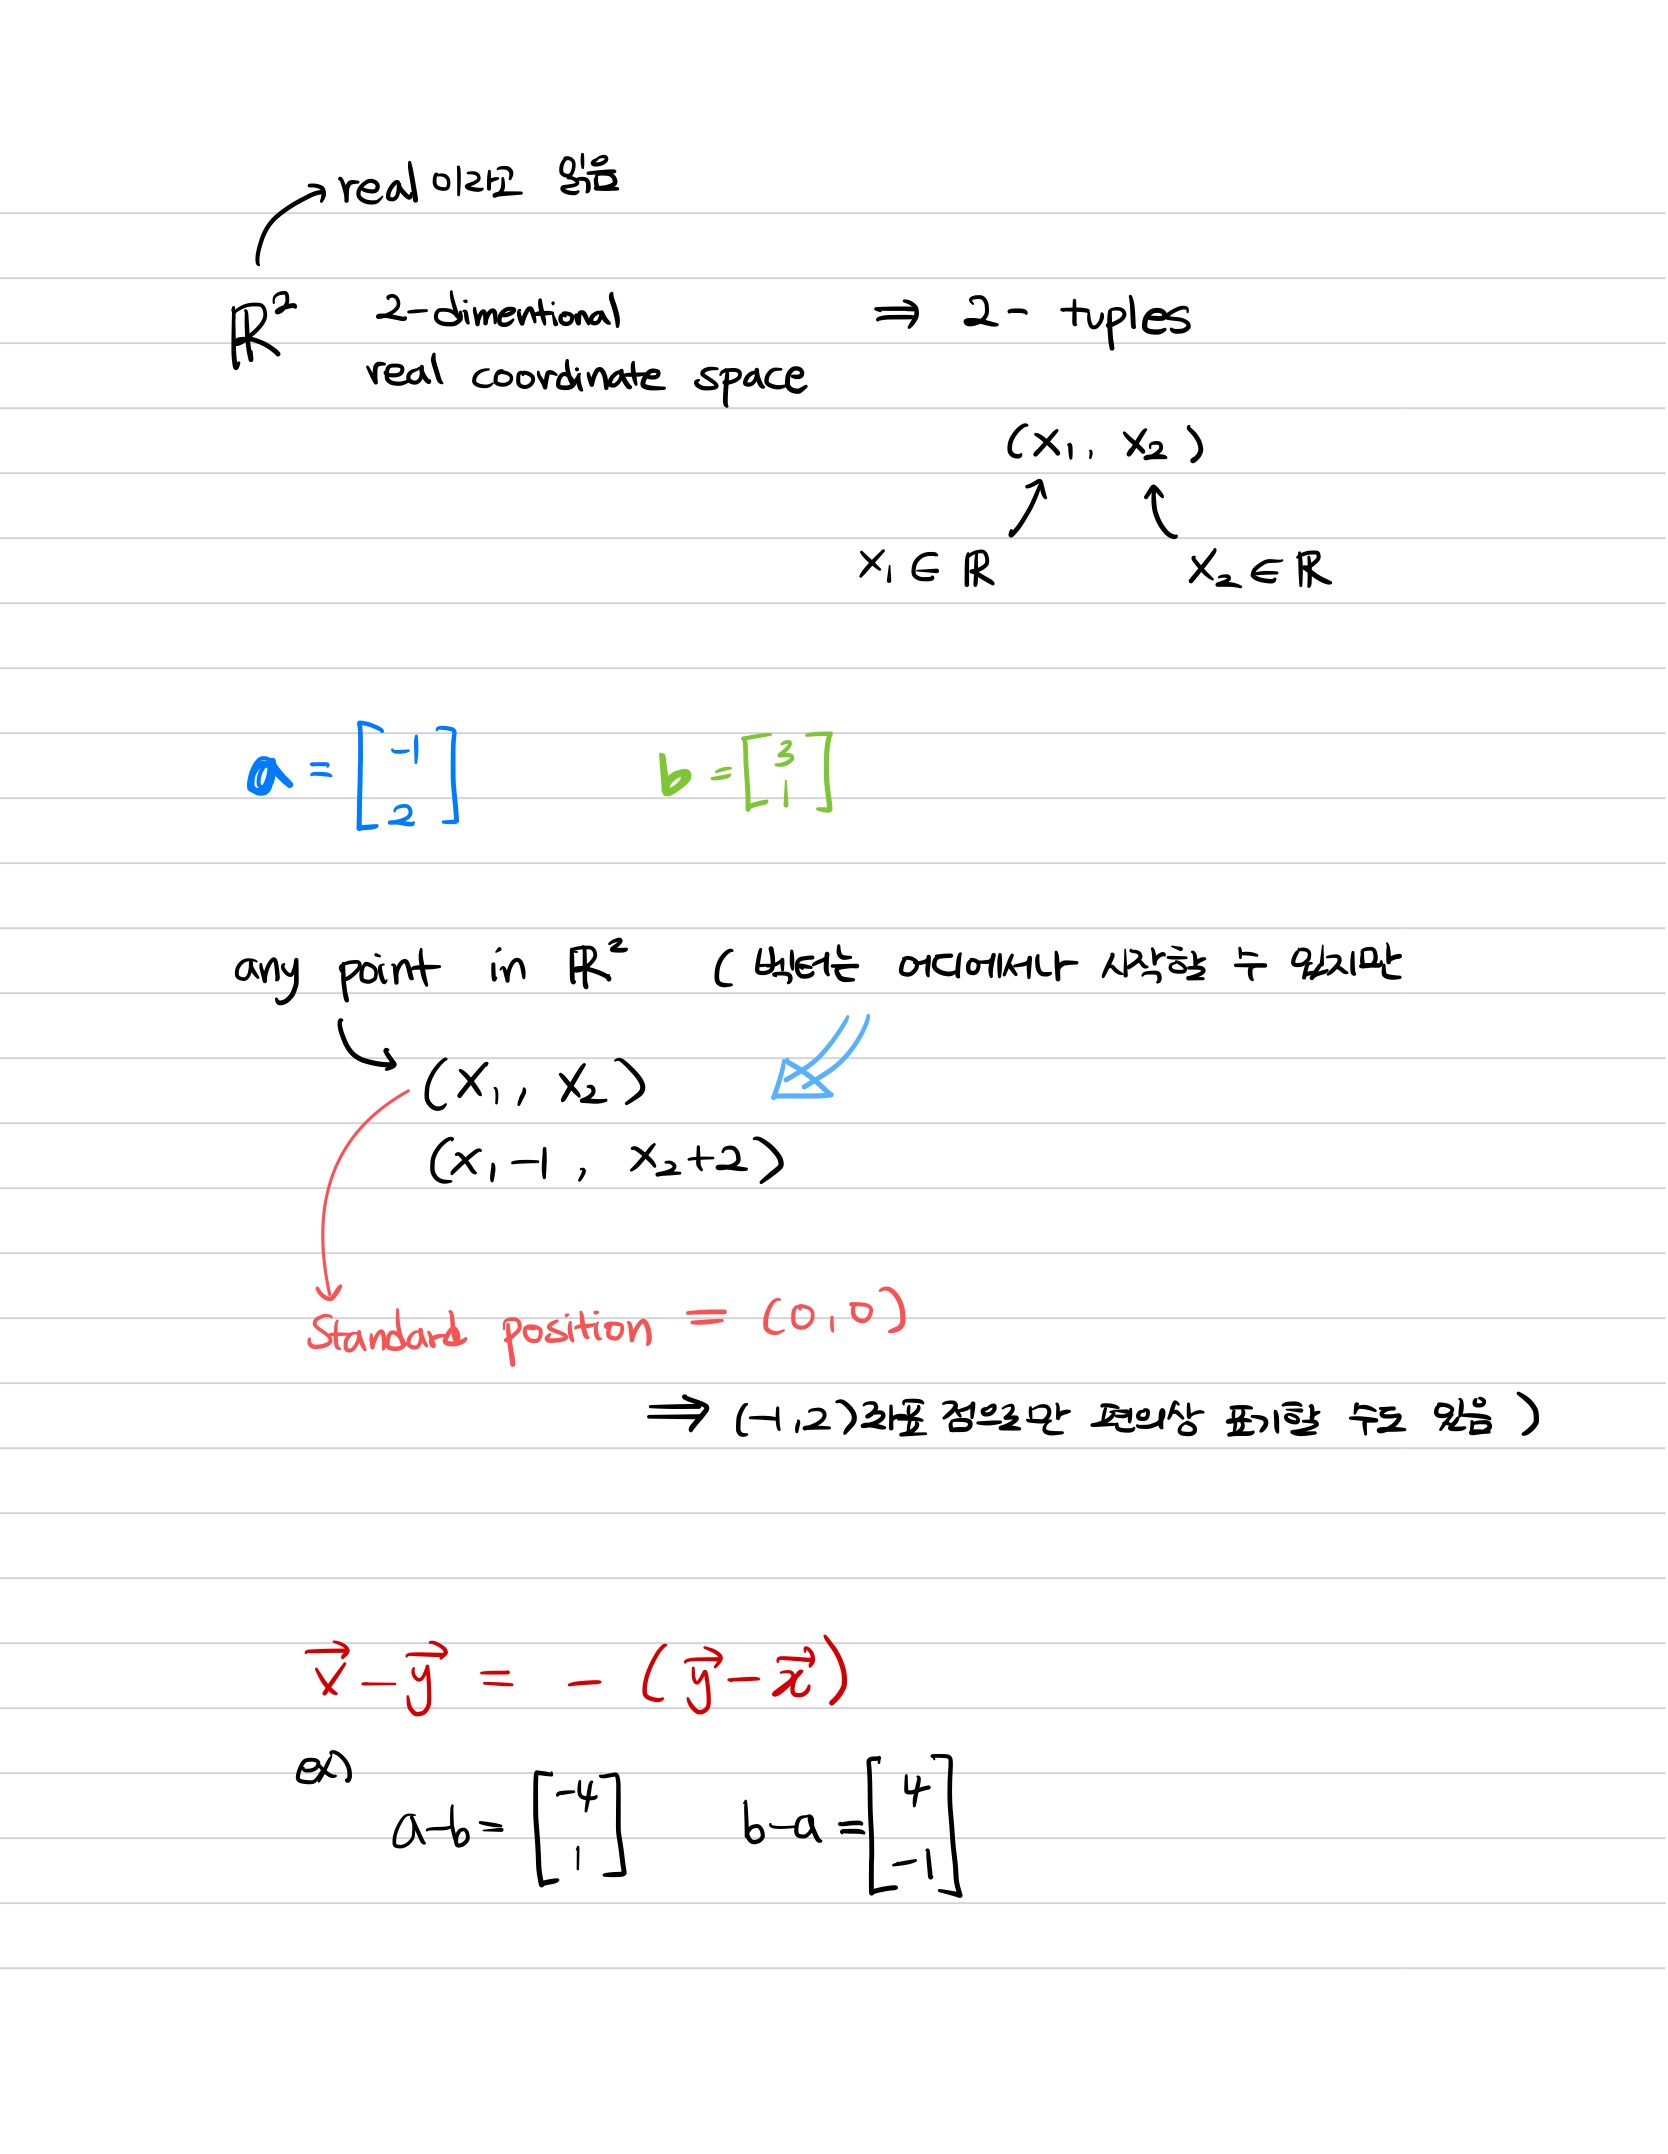 real 이라고 읽음
ℝ² 2-dimentional ⇒ 2- tuples
real coordinate space
(x₁, x₂)
x₁ ∈ ℝ x₂ ∈ ℝ
a = [-1 2] b = [3 1]
any point in ℝ² ( 벡터는 어디에서나 시작할 수 있지만
(x₁, x₂)
(x₁-1, x₂+2)
Standard position = (0,0)
⇒ (-1,2)좌표 점으로만 편의상 표기할 수도 있음 )
x⃗ - y⃗ = - (y⃗ - x⃗)
ex)
a-b = [-4 1] b-a = [4 -1]